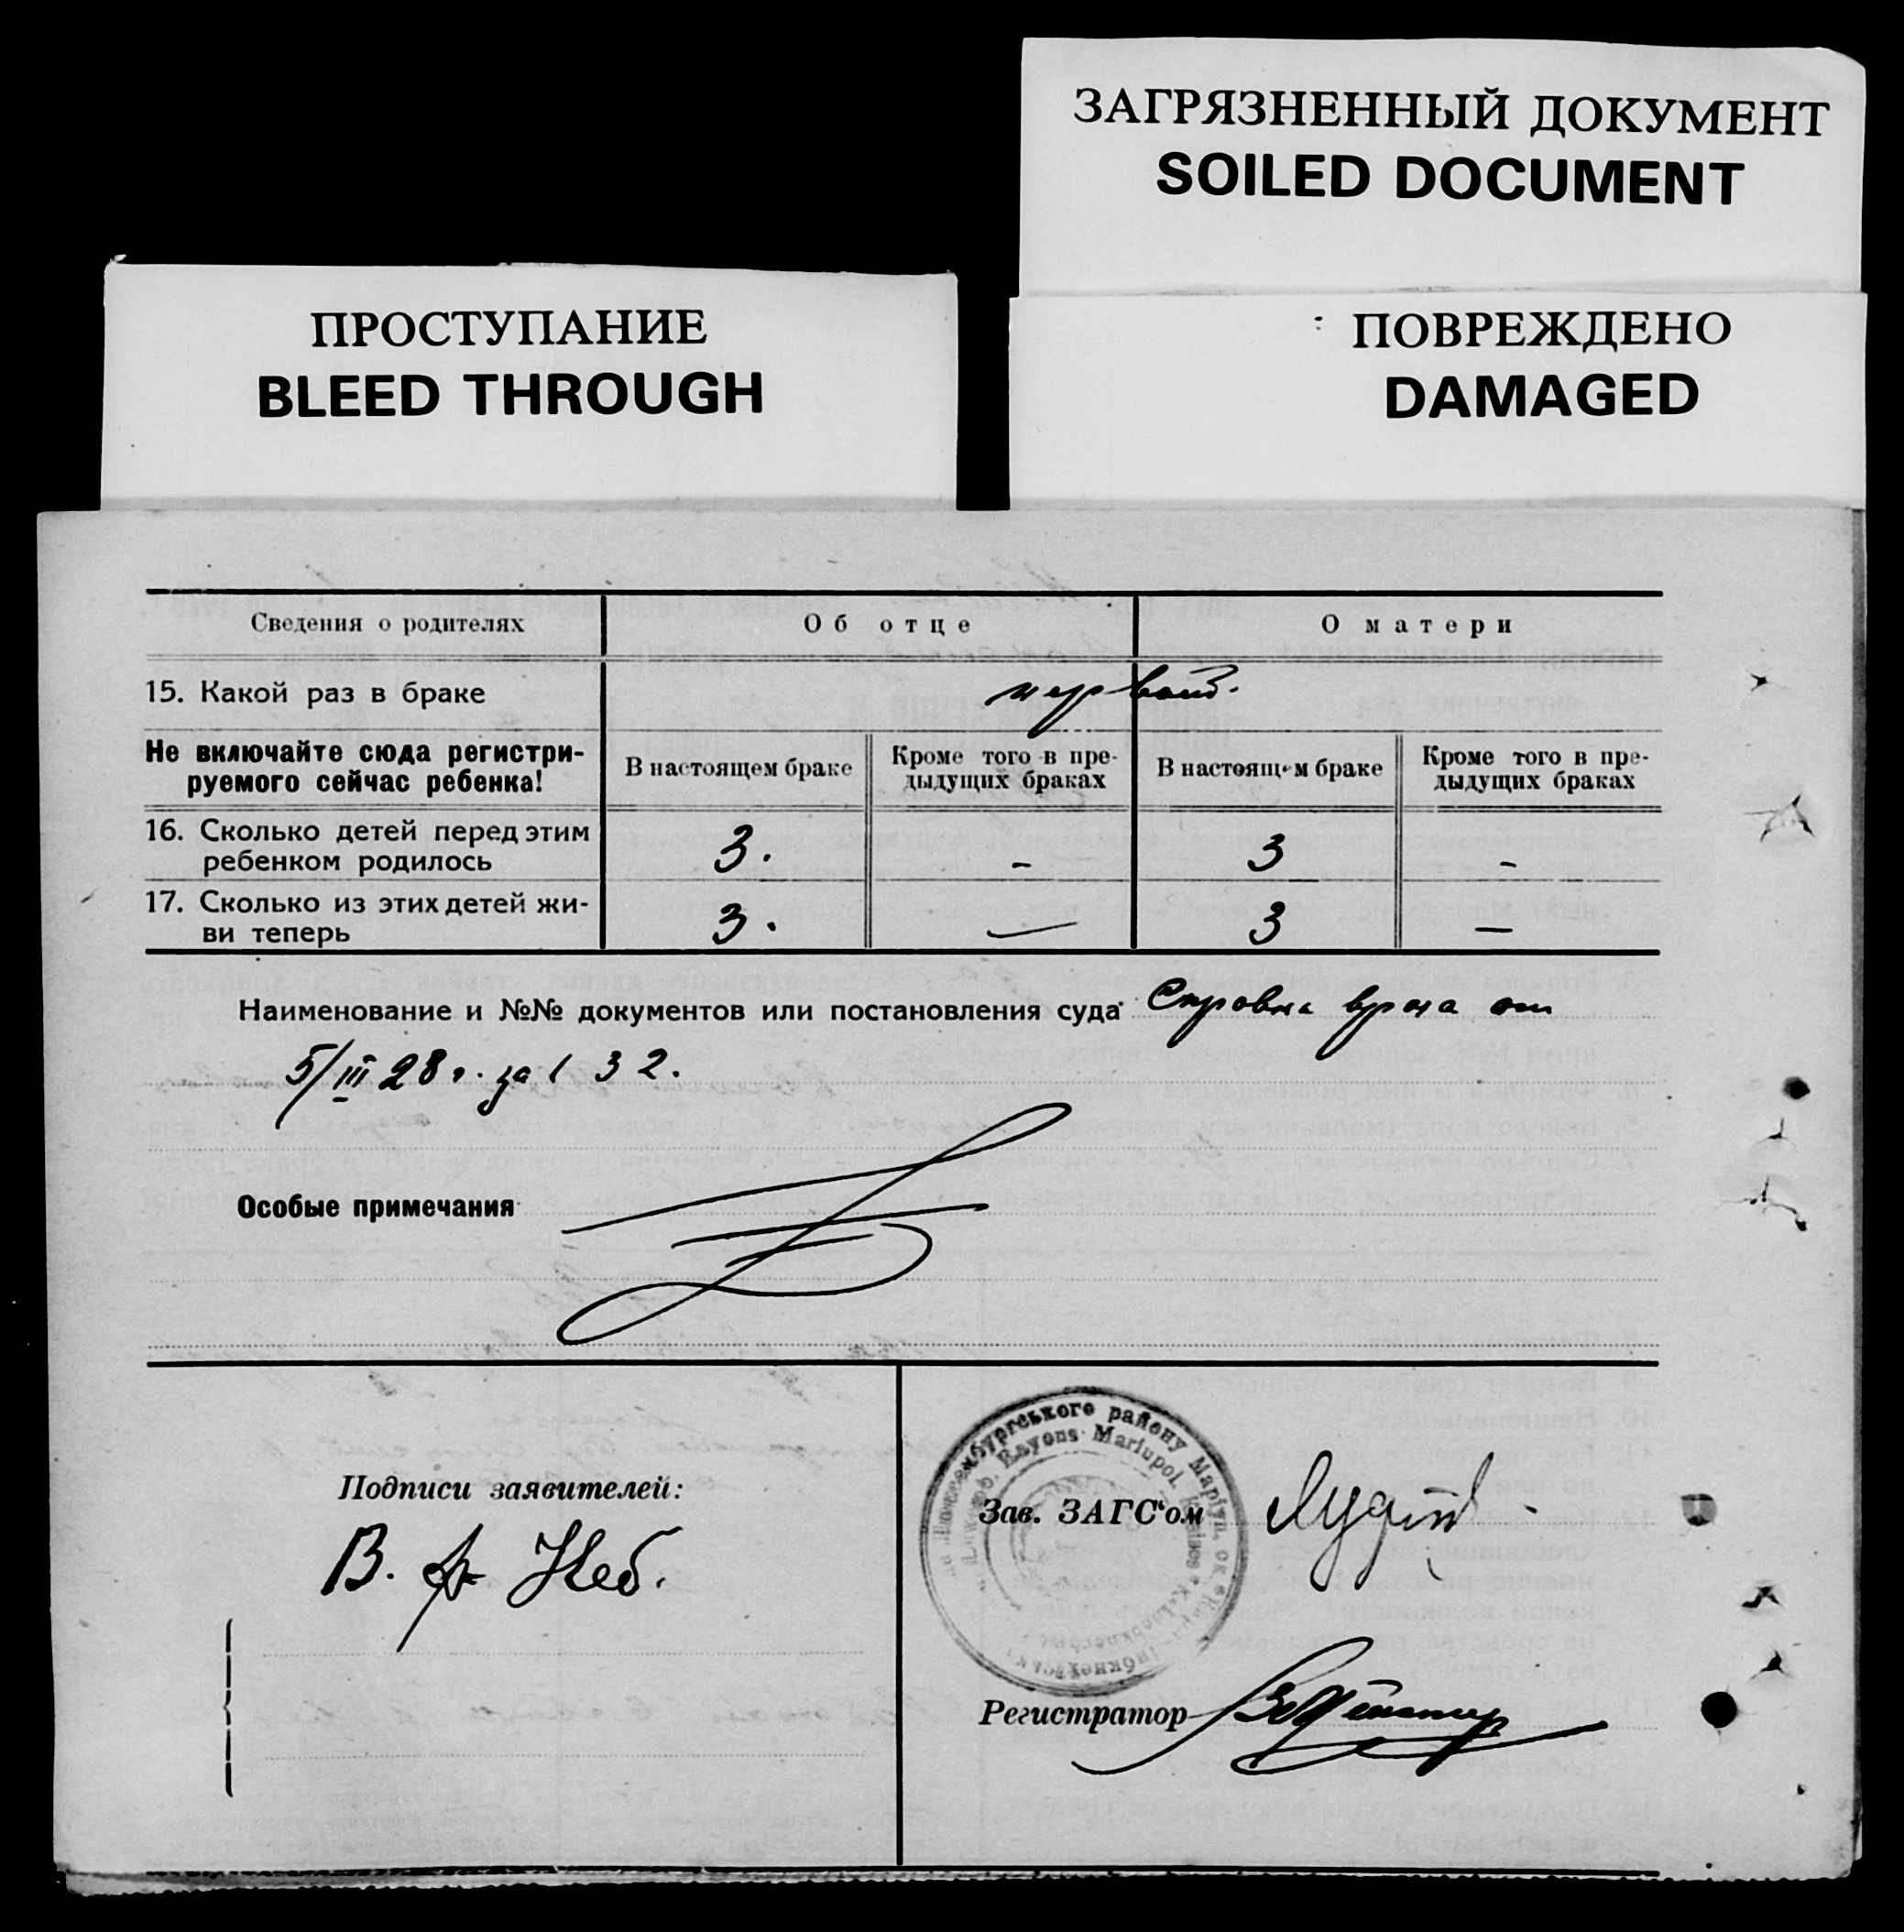 ЗАГРЯЗНЕННЫЙ ДОКУМЕНТ
SOILED DOCUMENT
ПРОСТУПАНИЕ
BLEED THROUGH
ПОВРЕЖДЕНО
DAMAGED
Сведения о родителях Об отце О матери
15. Какой раз в браке первый.
Не включайте сюда регистри-
руемого сейчас ребенка!
В настоящем браке
Кроме того в пре-
дыдущих браках
В настоящем браке
Кроме того в пре-
дыдущих браках
16. Сколько детей перед этим
ребенком родилось 3. - 3 -
17. Сколько из этих детей жи-
ви теперь 3. — 3 —
Наименование и №№ документов или постановления суда Справка врача от
5/III 28 г. за 132.
Особые примечания
Подписи заявителей:
В.
района Маріуп.
Rayons Mariupol.
Зав. ЗАГС'ом
Регистратор